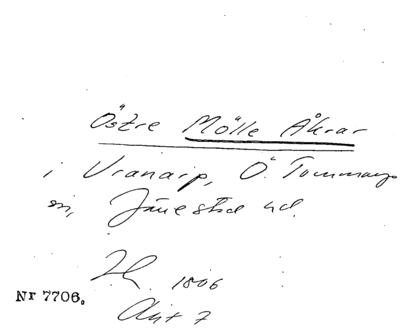 Östre Mölle Åkrar
i Vranarp, Ö. Tommarps
sn, Järrestad hd.
1806
Nr 7706.
Akt 7